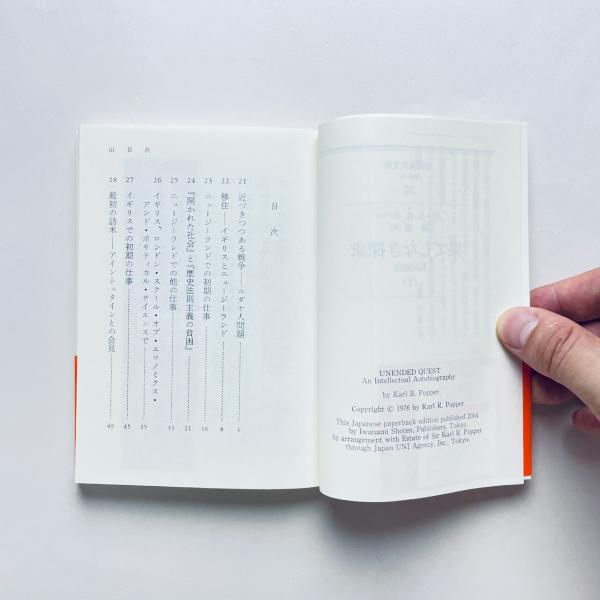 UNENDED QUEST
An Intellectual Autobiography
by Karl R. Popper
Copyright © 1976 by Karl R. Popper
This Japanese paperback edition published 2004
by Iwanami Shoten, Publishers, Tokyo
by arrangement with Estate of Sir Karl R. Popper
through Japan UNI Agency, Inc., Tokyo.
目次
21 近づきつつある戦争——ユダヤ人問題 1
22 移住——イギリスとニュージーランド 8
23 ニュージーランドでの初期の仕事 16
24 『開かれた社会』と『歴史法則主義の貧困』 21
25 ニュージーランドでの他の仕事 33
26 イギリス、ロンドン・スクール・オブ・エコノミクス・
アンド・ポリティカル・サイエンスで 35
27 イギリスでの初期の仕事 45
28 最初の訪米——アインシュタインとの会見 49
iii 目次